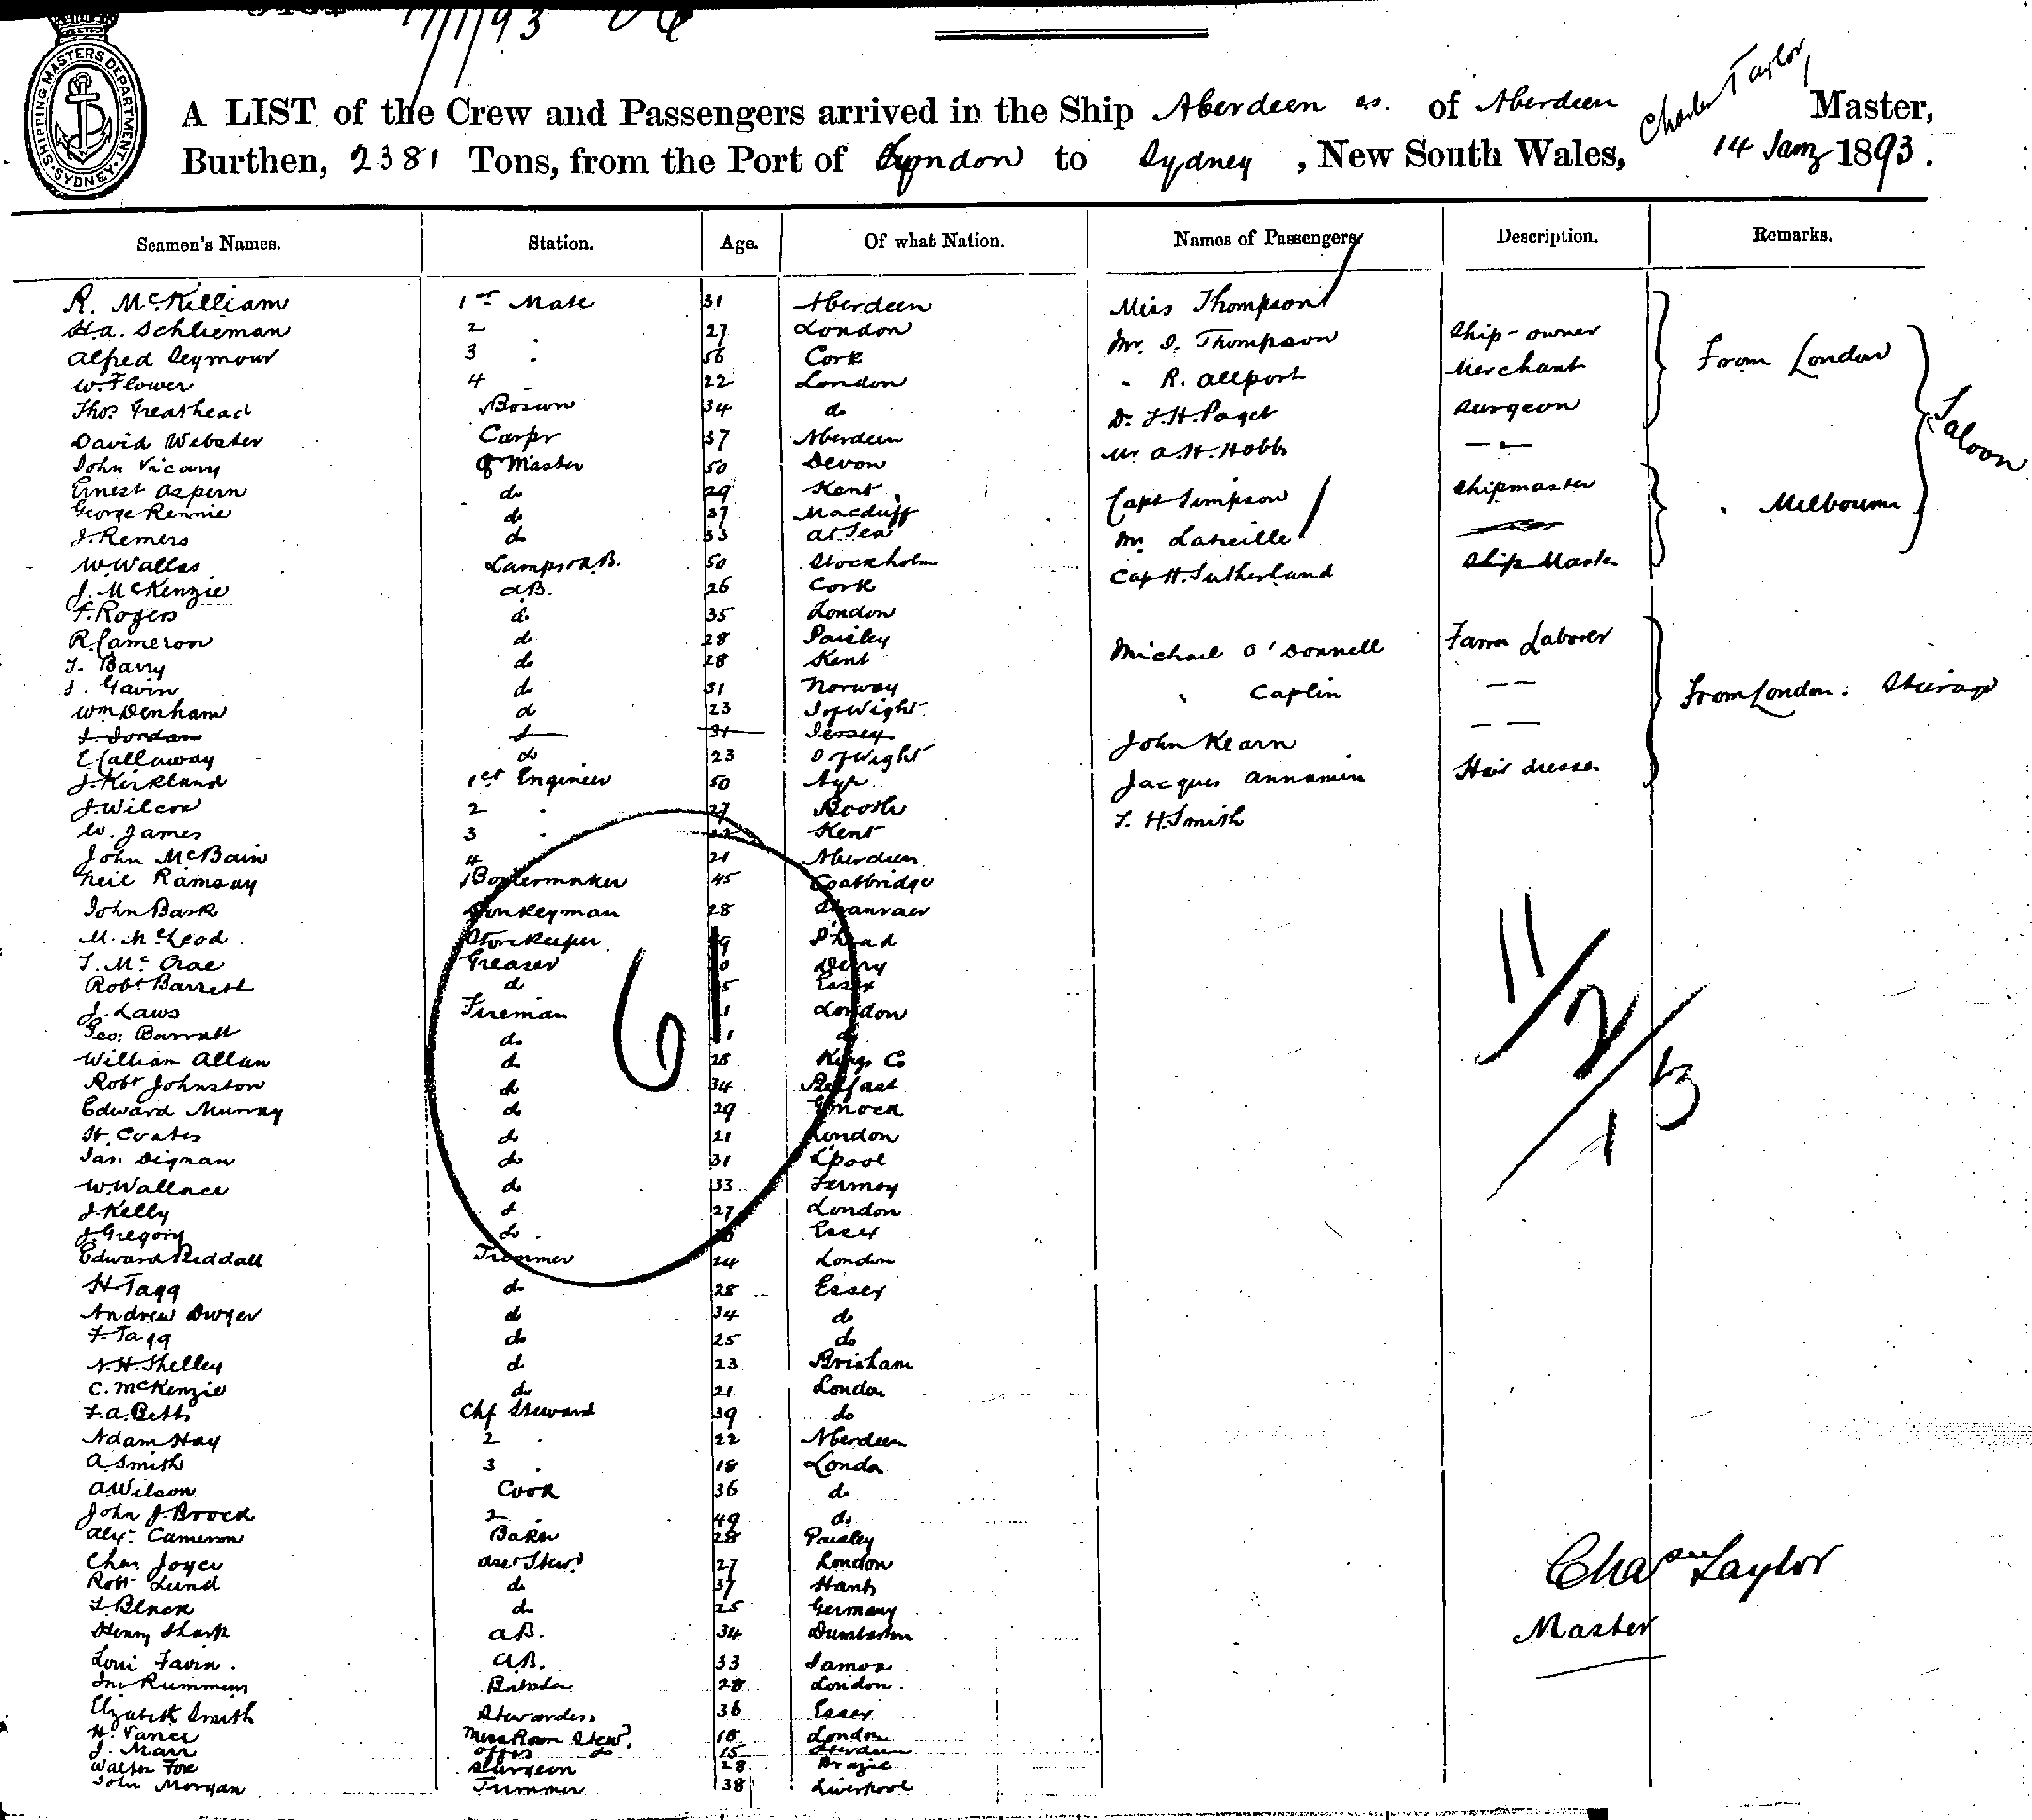 1/1/93
SHIPPING MASTERS DEPARTMENT. SYDNEY.
A LIST of the Crew and Passengers arrived in the Ship Aberdeen ss. of Aberdeen Charles Taylor, Master,
Burthen, 2381 Tons, from the Port of London to Sydney, New South Wales, 14 Jany 1893.
Seamen's Names. Station. Age. Of what Nation. Names of Passengers Description. Remarks.
R. McKilliam 1st Mate 31 Aberdeen Miss Thompson
H.a. Schlieman 2 27 London Mr. S. Thompson Ship-owner
Alfred Seymour 3 " 56 Cork " R. Allport Merchant From London
W. Flower 4 " 22 London Dr. F.H. Paget Surgeon
Thos Greathead Bosun 34 do Mr A.H. Hobbs — " —
David Webster Carpr 37 Aberdeen Saloon
John Vicary Q Master 50 Devon Capt Simpson Shipmaster
Ernest Aspern do 29 Kent Mr Latreille " Melbourne
George Rennie do 37 Macduff Capt H. Sutherland Ship Master
J. Remers do 33 at Sea
W. Wallas Lamps & A.B. 50 Stockholm
J. McKenzie A.B. 26 Cork
F. Rogers do 35 London
R. Cameron do 28 Paisley Michael O'Donnell Farm Laborer
T. Barry do 28 Kent
J. Gavin do 31 Norway " Caplin — — From London: Steerage
Wm Denham do 23 I of Wight
J. Jordan do 31 Jersey John Kearn — —
E. Callaway do 23 I of Wight
J. Kirkland 1st Engineer 50 Ayr Jacques Annamin Hair dresser
J. Wilcox 2 " 27 Bootle T. H. Smith
W. James 3 " 22 Kent
John McBain 4 21 Aberdeen
Neil Ramsay Boylermaker 45 Coatbridge
John Bark Donkeyman 28 Stranraer
M. McLeod Storekeeper
T. McCrae Greaser Derry
Robt Barrett do Essex
J. Laws Fireman London
Geo: Barratt do do
William Allan do 28 Kings Co
Robt Johnston do 34 Belfast
Edward Murray do 29 G'nock
H. Coates do 21 London
Jas. Dignan do 31 L'pool
W. Wallace do 33 Fermoy
J. Kelly do 27 London
J. Gregory do Essex
Edward Beddall Trimmer 24 London
H. Tagg do 28 Essex
Andrew Dwyer do 34 do
F. Tagg do 25 do
N.H. Shelley do 23 Brixham
C. McKenzie do 21 London
F.A. Betts Chf Steward 39 do
Adam Hay 2 " 22 Aberdeen
A Smith 3 " 18 London
A Wilson Cook 36 do
John J. Brock 2 " 49 do
Alexr Cameron Baker 28 Paisley
Chas Joyce Asst Stewd 27 London
Robt Lund do 37 Hants
J. Black do 25 Germany
Henry Sharp A.B. 34 Dumbarton
Loui Favin. A.B. 33 Samoa
Jno Rummens 28 London
Elizabeth Smith Stewardess 36 Essex
H. Vance Mess Room Stewd. 18 London
J. Marr Offrs do 15 Aberdeen
Walter Fox Surgeon 28 Brazil
John Morgan Trimmer 38 Liverpool
6
11/2/13
1
Chas Taylor
Master